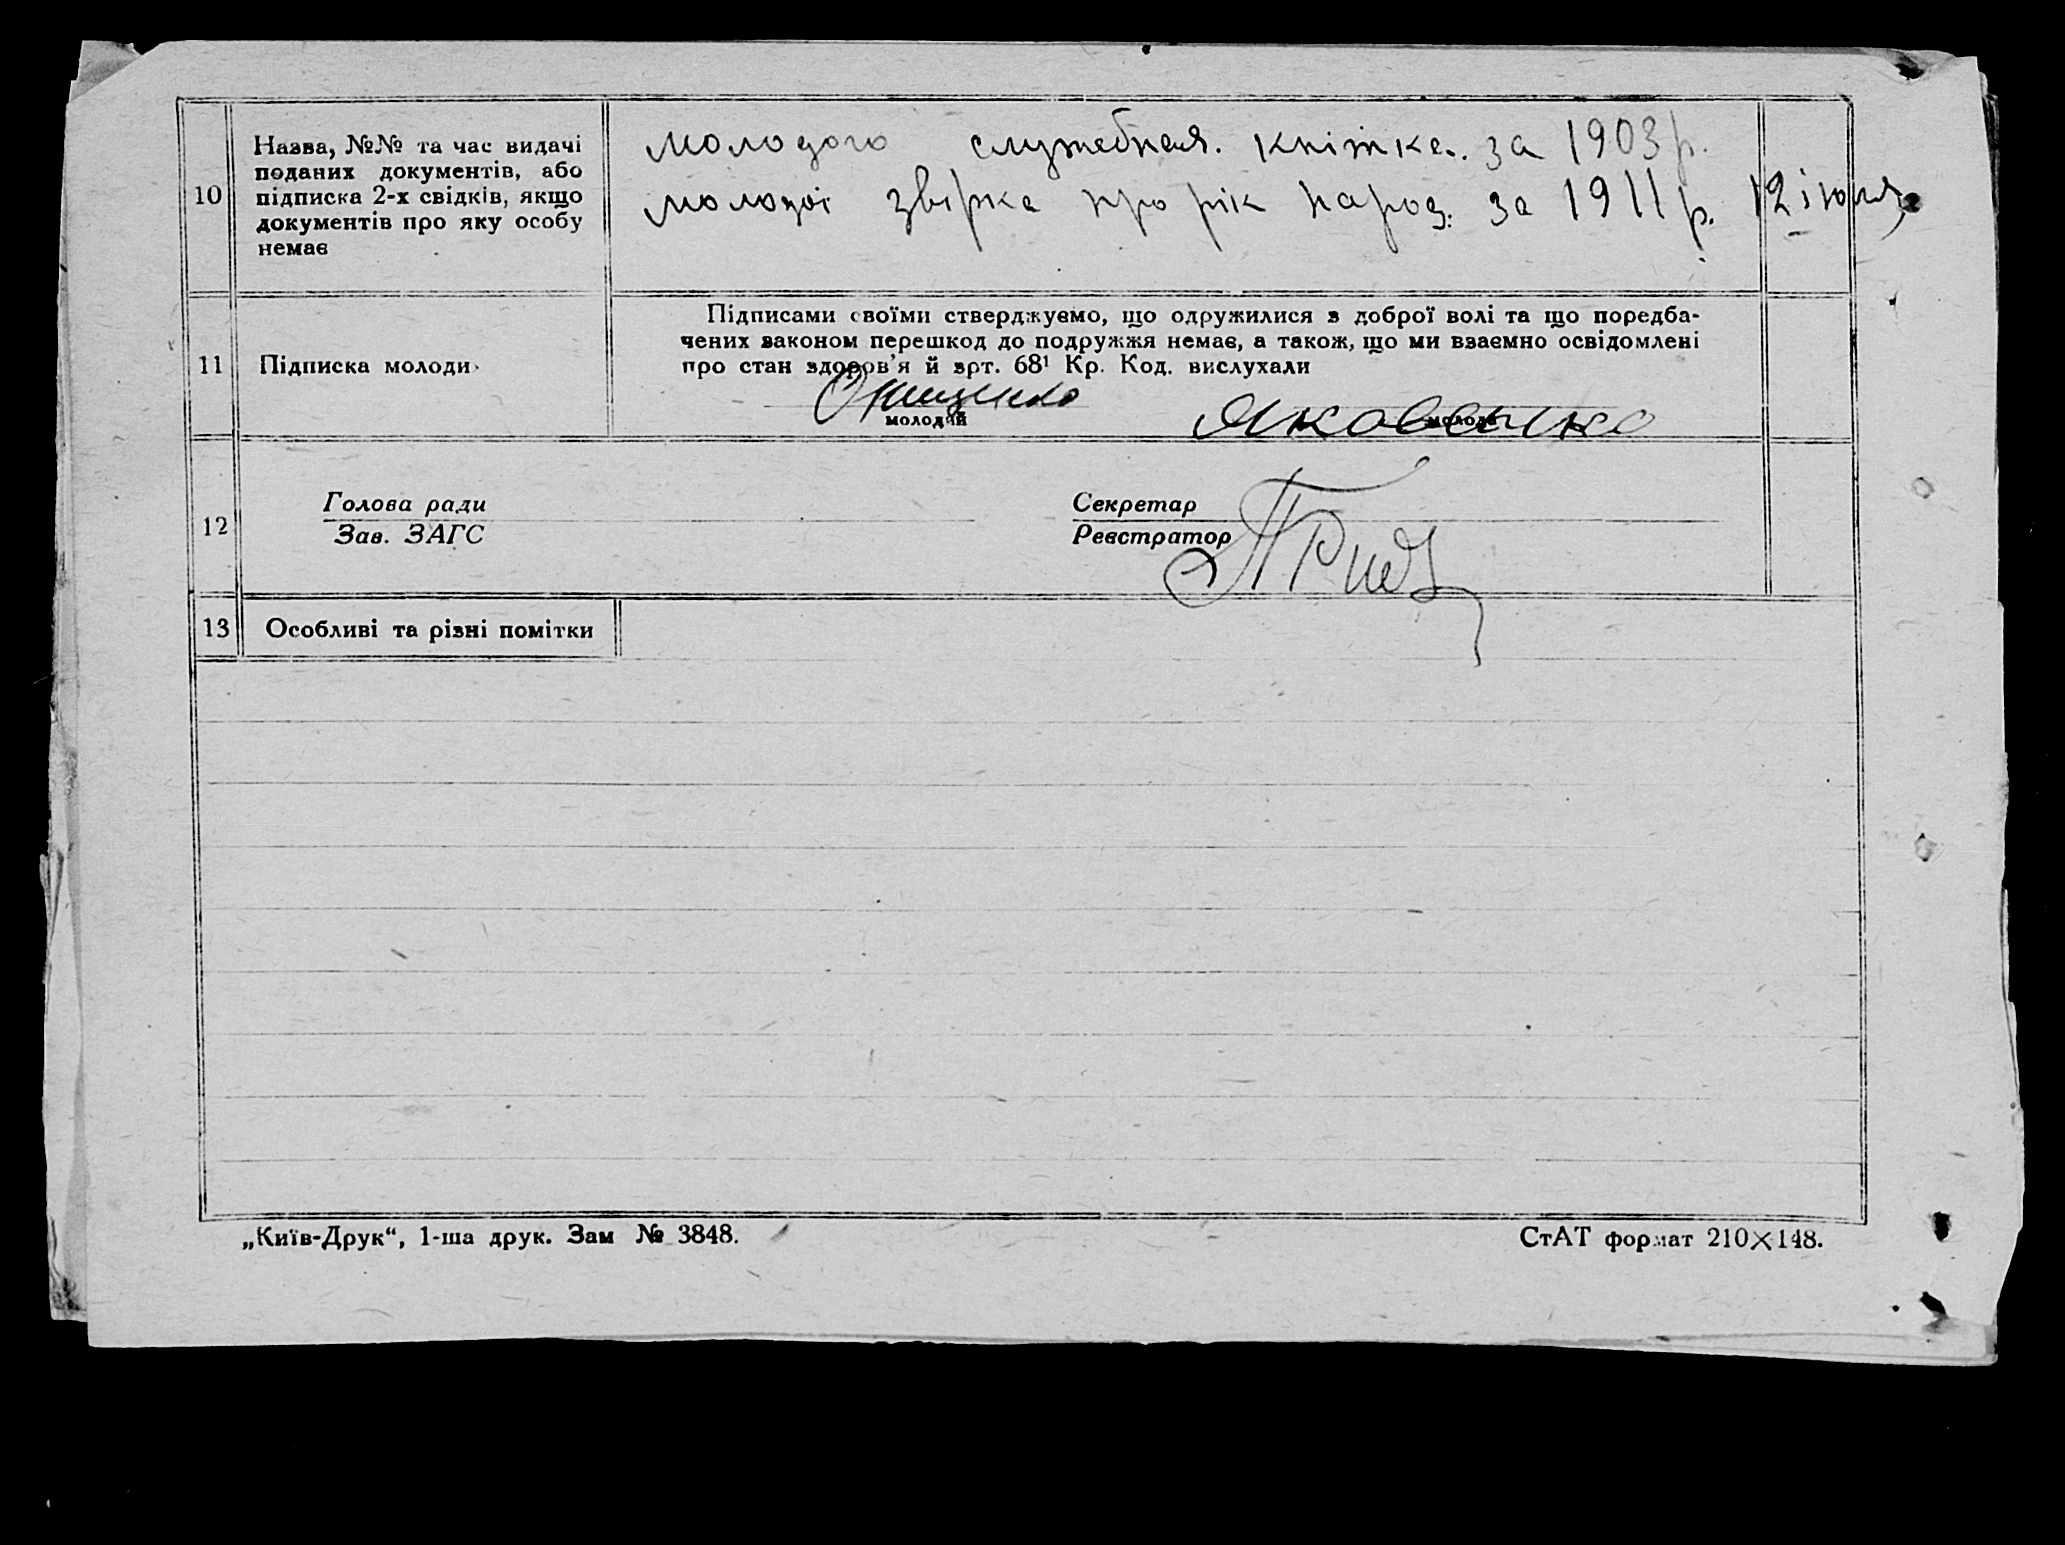 10
Назва, №№ та час видачі
поданих документів, або
підписка 2-х свідків, якщо
документів про яку особу
немає
молодого служебная. кніжка. за 1903 р.
молодої звірка про рік народ. за 1911 р. 12 іюля
11
Підписка молоди
Підписами своїми стверджуємо, що одружилися з доброї волі та що поредба-
чених законом перешкод до подружжя немає, а також, що ми взаємно освідомлені
про стан здоров'я й арт. 68¹ Кр. Код. вислухали
Онищенко
молодий
Яковенко
молода
12
Голова ради
Зав. ЗАГС
Секретар
Реєстратор
13
Особливі та різні помітки
„Київ-Друк“, 1-ша друк. Зам № 3848.
СтАТ формат 210×148.